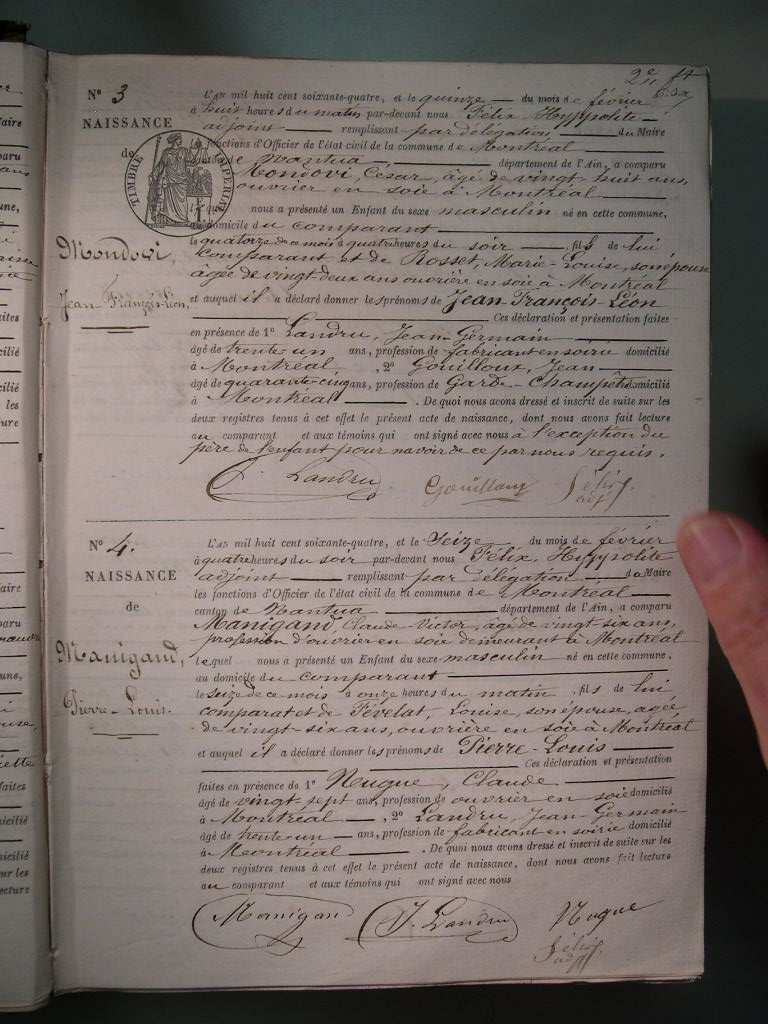 2e ft
N° 3
NAISSANCE
de
TIMBRE IMPERIAL
Mondovi,
Jean François-Léon,
L'AN mil huit cent soixante-quatre, et le quinze du mois de février
à huit heures du matin par-devant nous Félix, Hyppolite
adjoint remplissant par délégation du Maire
les fonctions d'Officier de l'état civil de la commune de Montréal
de Nantua département de l'Ain, a comparu
Mondovi, César, âgé de vingt-huit ans,
ouvrier en soie à Montréal
lequel nous a présenté un Enfant du sexe masculin né en cette commune,
au domicile du comparant
le quatorze de ce mois à quatre heures du soir fils de lui
comparant et de Rosset, Marie-Louise, son épouse
âgée de vingt-deux ans ouvrière en soie à Montréal
et auquel il a déclaré donner les prénoms de Jean François-Léon
Ces déclaration et présentation faites
en présence de 1° Landru, Jean-Germain
âgé de trente un ans, profession de fabricant en soirie domicilié
à Montréal, 2° Gouilloux, Jean
âgé de quarante-cinq ans, profession de Garde-Champêtre domicilié
à Montréal. De quoi nous avons dressé et inscrit de suite sur les
deux registres tenus à cet effet le présent acte de naissance, dont nous avons fait lecture
au comparant et aux témoins qui ont signé avec nous à l'exception du
père de l'enfant pour navoir de ce par nous requis.
J. Landru Gouilloux Félix
adj.
N° 4.
NAISSANCE
de
Manigand,
Pierre-Louis.
L'AN mil huit cent soixante-quatre, et le Seize du mois de février
à quatre heures du soir par-devant nous Félix, Hyppolite
adjoint remplissant par délégation du Maire
les fonctions d'Officier de l'état civil de la commune de Montréal
canton de Nantua département de l'Ain, a comparu
Manigand, Claude-Victor, âgé de vingt six ans,
profession d'ouvrier en soie demeurant à Montréal
lequel nous a présenté un Enfant du sexe masculin né en cette commune,
au domicile du comparant
le seize de ce mois à onze heures du matin, fils de lui
comparat et de Févelat, Louise, son épouse, agée
de vingt-six ans, ouvrière en soie à Montréal
et auquel il a déclaré donner les prénoms de Pierre-Louis
Ces déclaration et présentation
faites en présence de 1° Neugue, Claude
âgé de vingt-sept ans, profession de ouvrier en soie domicilié
à Montréal, 2° Landru, Jean-Germain
âgé de trente-un ans, profession de fabricant en soirie domicilié
à Montréal. De quoi nous avons dressé et inscrit de suite sur les
deux registres tenus à cet effet le présent acte de naissance, dont nous avons fait lecture
au comparant et aux témoins qui ont signé avec nous
Manigan J. Landru Nugue
Félix
adj.